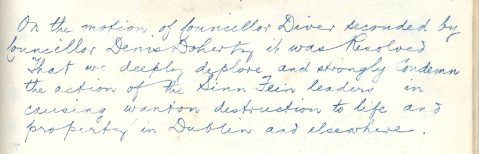 On the motion of Councillor Diver seconded by
Councillor Denis Doherty it was Resolved
That we deeply deplore and strongly Condemn
the action of the Sinn Fein leaders in
causing wanton distruction to life and
property in Dublin and elsewhere.